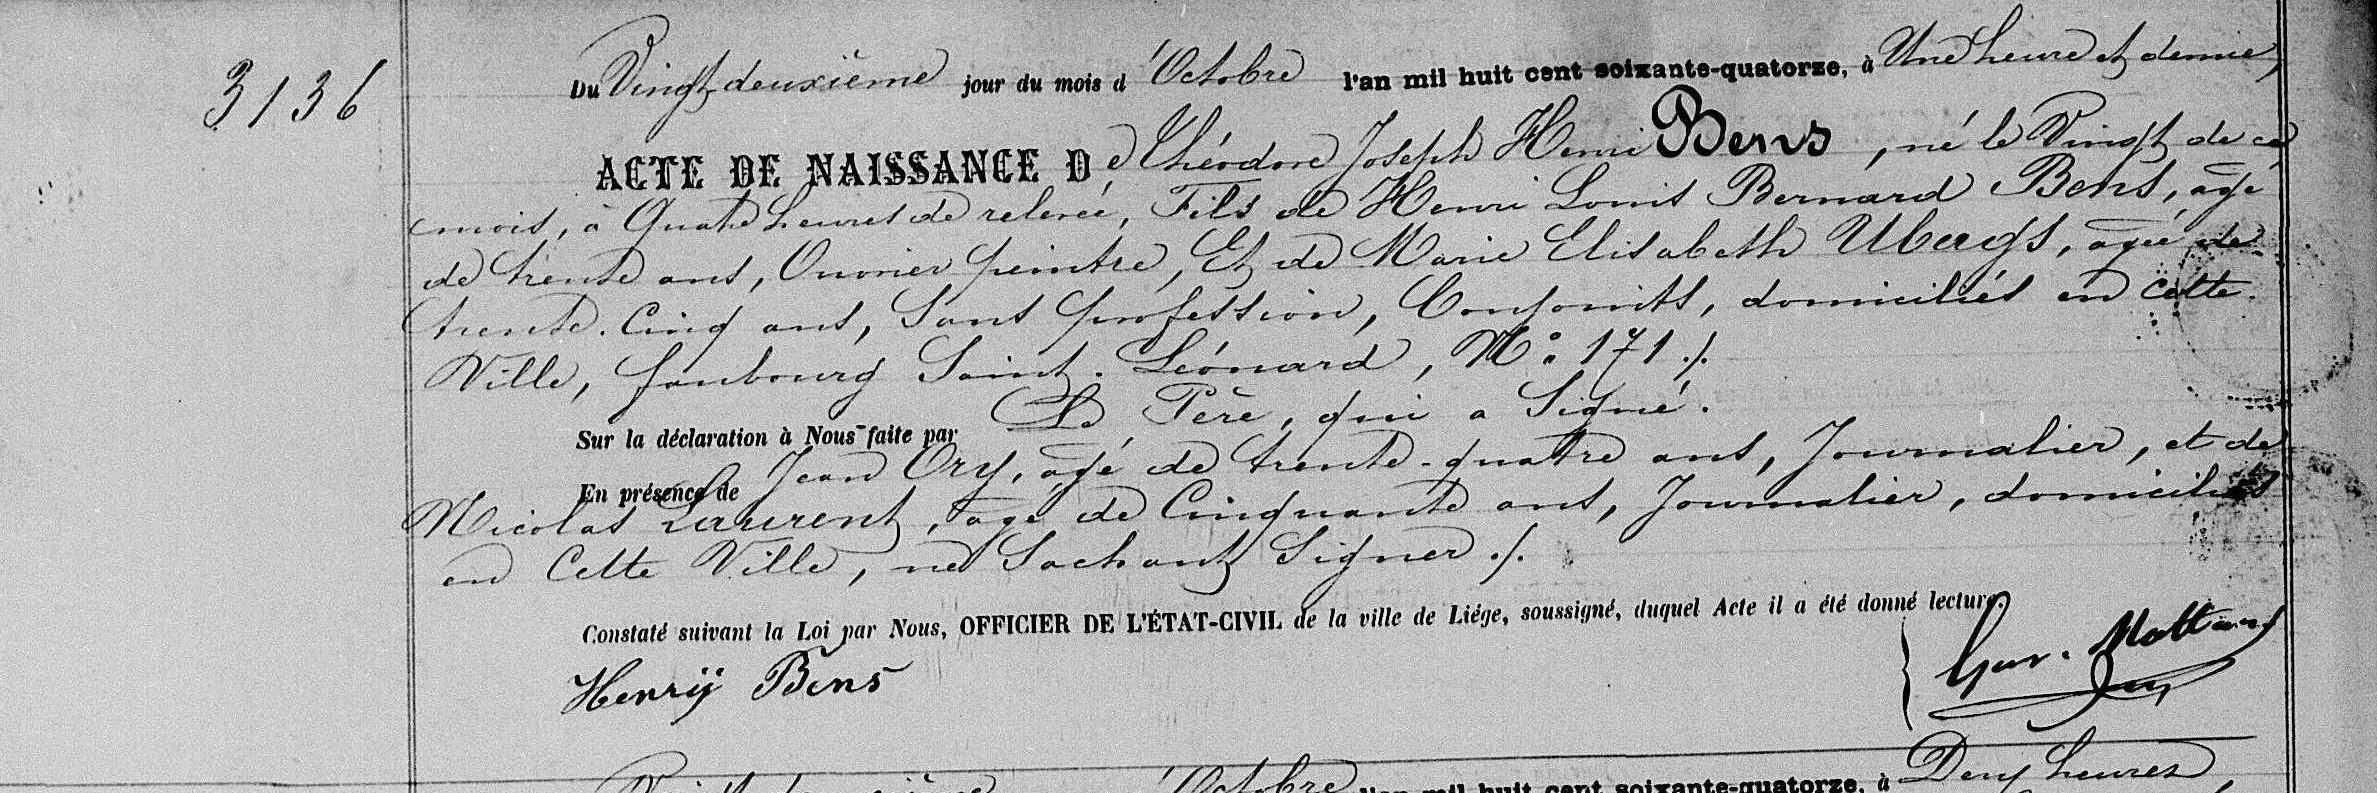 3136
Du Vingt deuxième jour du mois d'Octobre l'an mil huit cent soixante-quatorze, à Une heure et demie,
ACTE DE NAISSANCE De Théodore Joseph Henri Bens, né le Vingt de ce
mois, à Quatre heures de relevée, Fils de Henri Louis Bernard Bens, âgé
de trente ans, Ouvrier peintre, Et de Marie Elisabeth Ubags, agée de
trente-Cinq ans, Sans profession, Conjoints, domiciliés en cette
Ville, faubourg Saint-Léonard, No: 171 ./.
Sur la déclaration à Nous faite par Le Père, qui a Signé.
En présence de Jean Ory, âgé de trente-quatre ans, Journalier, et de
Nicolas Laurent, âgé de Cinquante ans, Journalier, domiciliés
en Cette Ville, ne Sachant Signer ./.
Constaté suivant la Loi par Nous, OFFICIER DE L'ÉTAT-CIVIL de la ville de Liége, soussigné, duquel Acte il a été donné lecture.
Henrij Bens
Octobre l'an mil huit cent soixante-quatorze, à Deux heures,